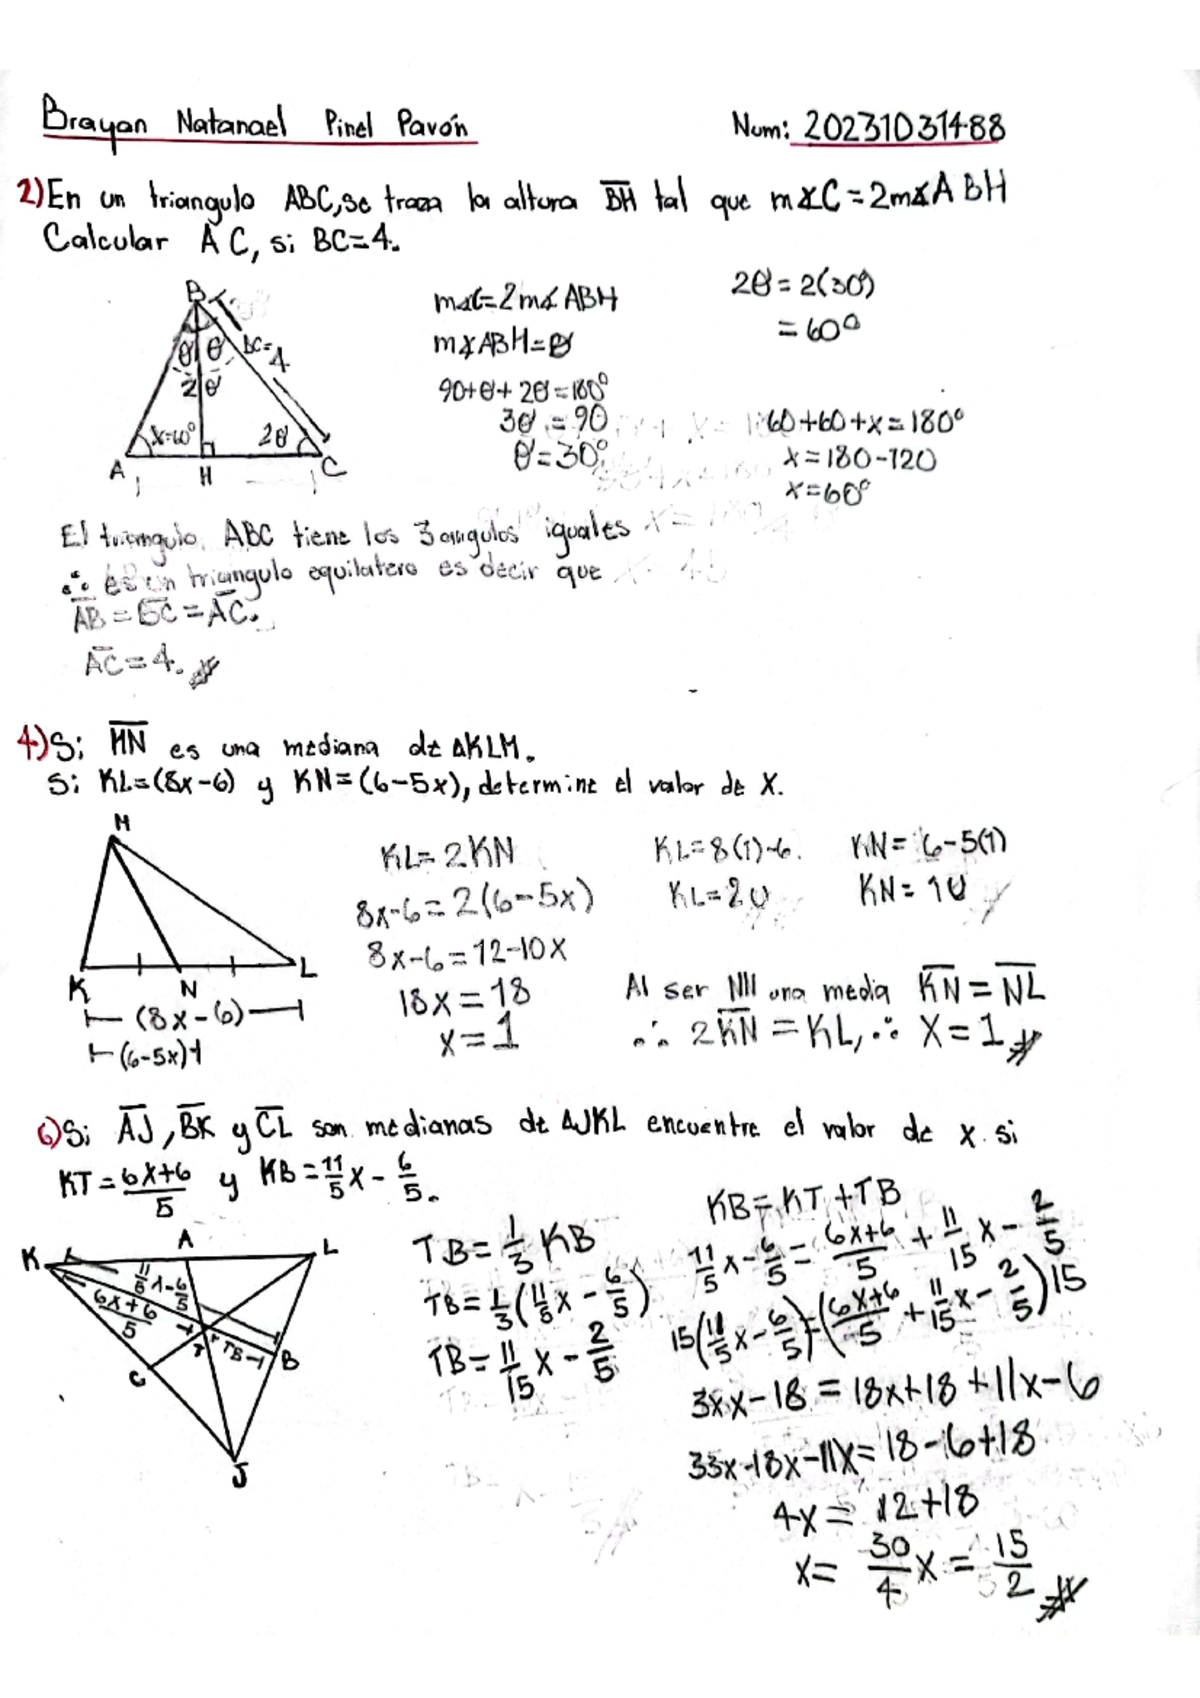 Brayan Natanael Pinel Pavón Num: 20231031488
2) En un triangulo ABC, se traza la altura BH tal que m∡C = 2m∡ABH
Calcular AC, si BC=4.
B
θ θ BC= 4
2 θ
x=60° 2θ
A H C
m∡C=2m∡ABH
m∡ABH=θ
90+θ+2θ=180°
3θ = 90
θ=30°
2θ = 2(30°)
= 60°
60+60+x=180°
x=180-120
x=60°
El triangulo ABC tiene los 3 angulos iguales
∴ es un triangulo equilatero es decir que
AB = BC = AC.
AC = 4.
4) Si MN es una mediana de ΔKLM.
Si KL=(8x-6) y KN=(6-5x), determine el valor de X.
M
K N L
(8x-6)
(6-5x)
KL=2KN
8x-6=2(6-5x)
8x-6=12-10x
18x=18
x=1
KL=8(1)-6. KN= 6-5(1)
KL=20 KN= 10
Al ser NM una media KN=NL
∴ 2KN=KL, ∴ X=1
6) Si AJ, BK y CL son medianas de ΔJKL encuentre el valor de x si
KT = 6x+6/5 y KB = 11/5 x - 6/5.
K A L
11/5 x - 6/5
6x+6/5
T TB B
C
J
TB = 1/3 KB
TB = 1/3 (11/5 x - 6/5)
TB = 11/15 x - 2/5
KB = KT + TB
11/5 x - 6/5 = 6x+6/5 + 11/15 x - 2/5
15(11/5 x - 6/5) = (6x+6/5 + 11/15 x - 2/5)15
33x-18 = 18x+18+11x-6
33x-18x-11x=18-6+18
4x = 12+18
x= 30/4 x = 15/2